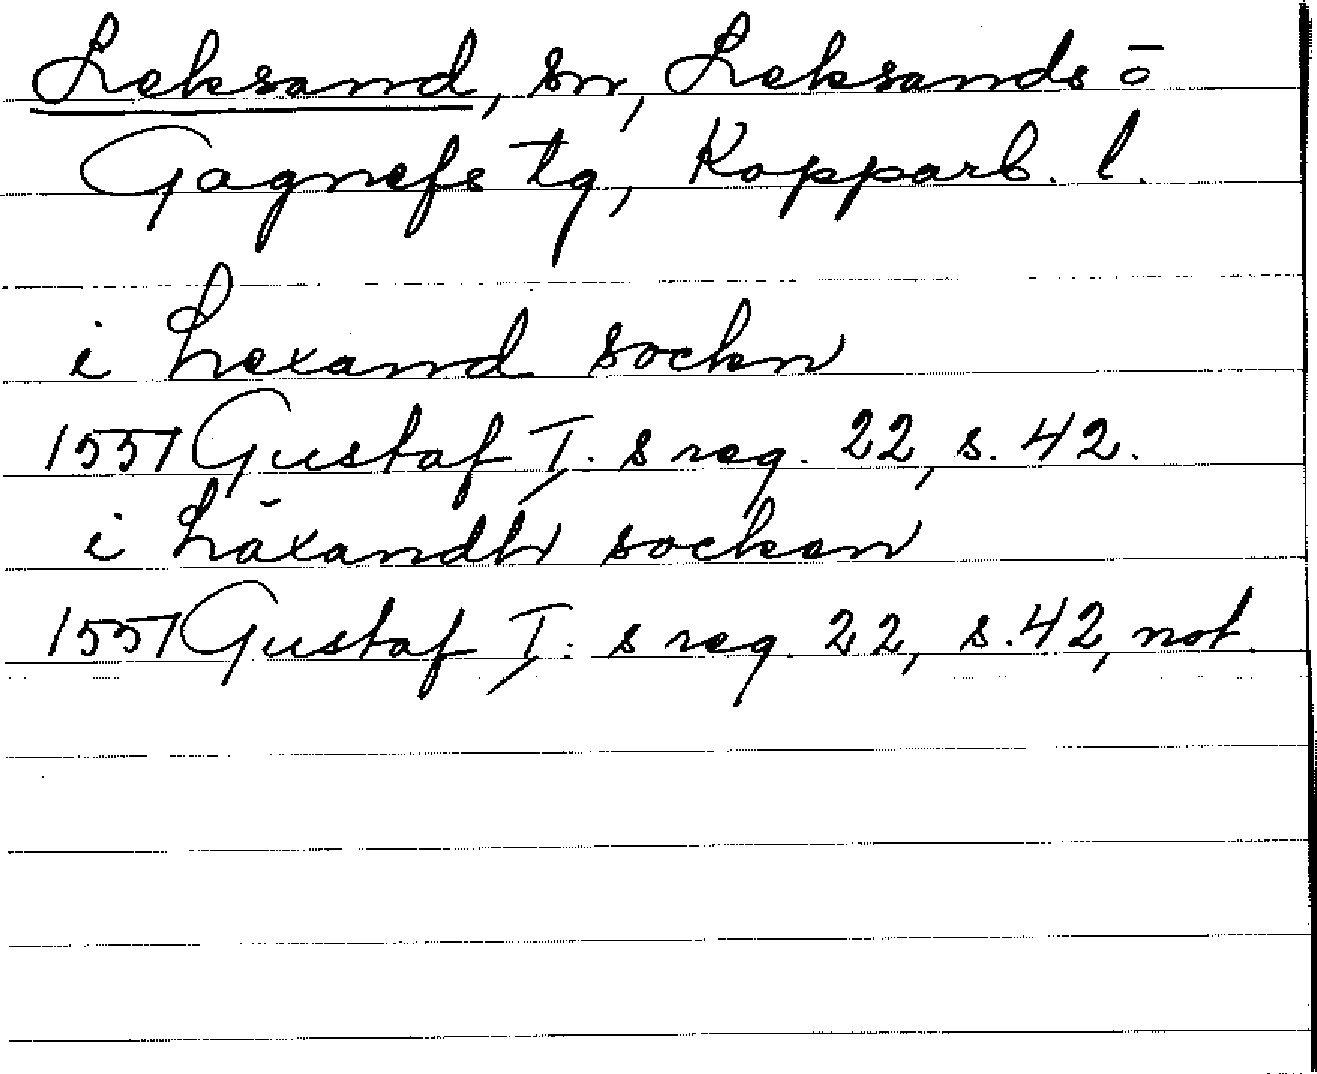 Leksand, sn, Leksands o
Gagnefs tg, Kopparb. l.
i Lexand sockn
1551 Gustaf I. s reg. 22, s. 42.
i Läxandh socken
1551 Gustaf I: s reg. 22, s. 42, not.